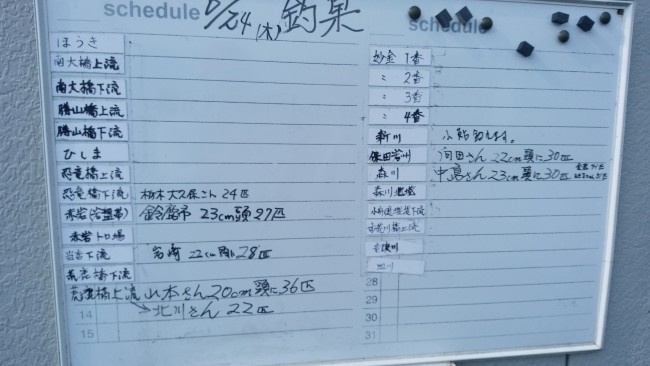 schedule
/24 (木) 釣果
schedule
ほうき
南大橋上流
南大橋下流
勝山橋上流
勝山橋下流
ひしま
恐竜橋上流
恐竜橋下流 栃木大久保さん 24匹
赤岩(岩盤帯) 鈴鹿市 23cm頭27匹
赤岩トロ場
下流 岩崎 22cm 28匹
荒鹿橋下流
橋上流 山本さん20cm頭に36匹
14 北川さん 22匹
15
妙金 1番
〃 2番
〃 3番
〃 4番
新川 小鮎釣れます。
22cm頭に30匹
森川 中島さん23cm頭に30匹
森川
下流
橋上流
28
29
30
31